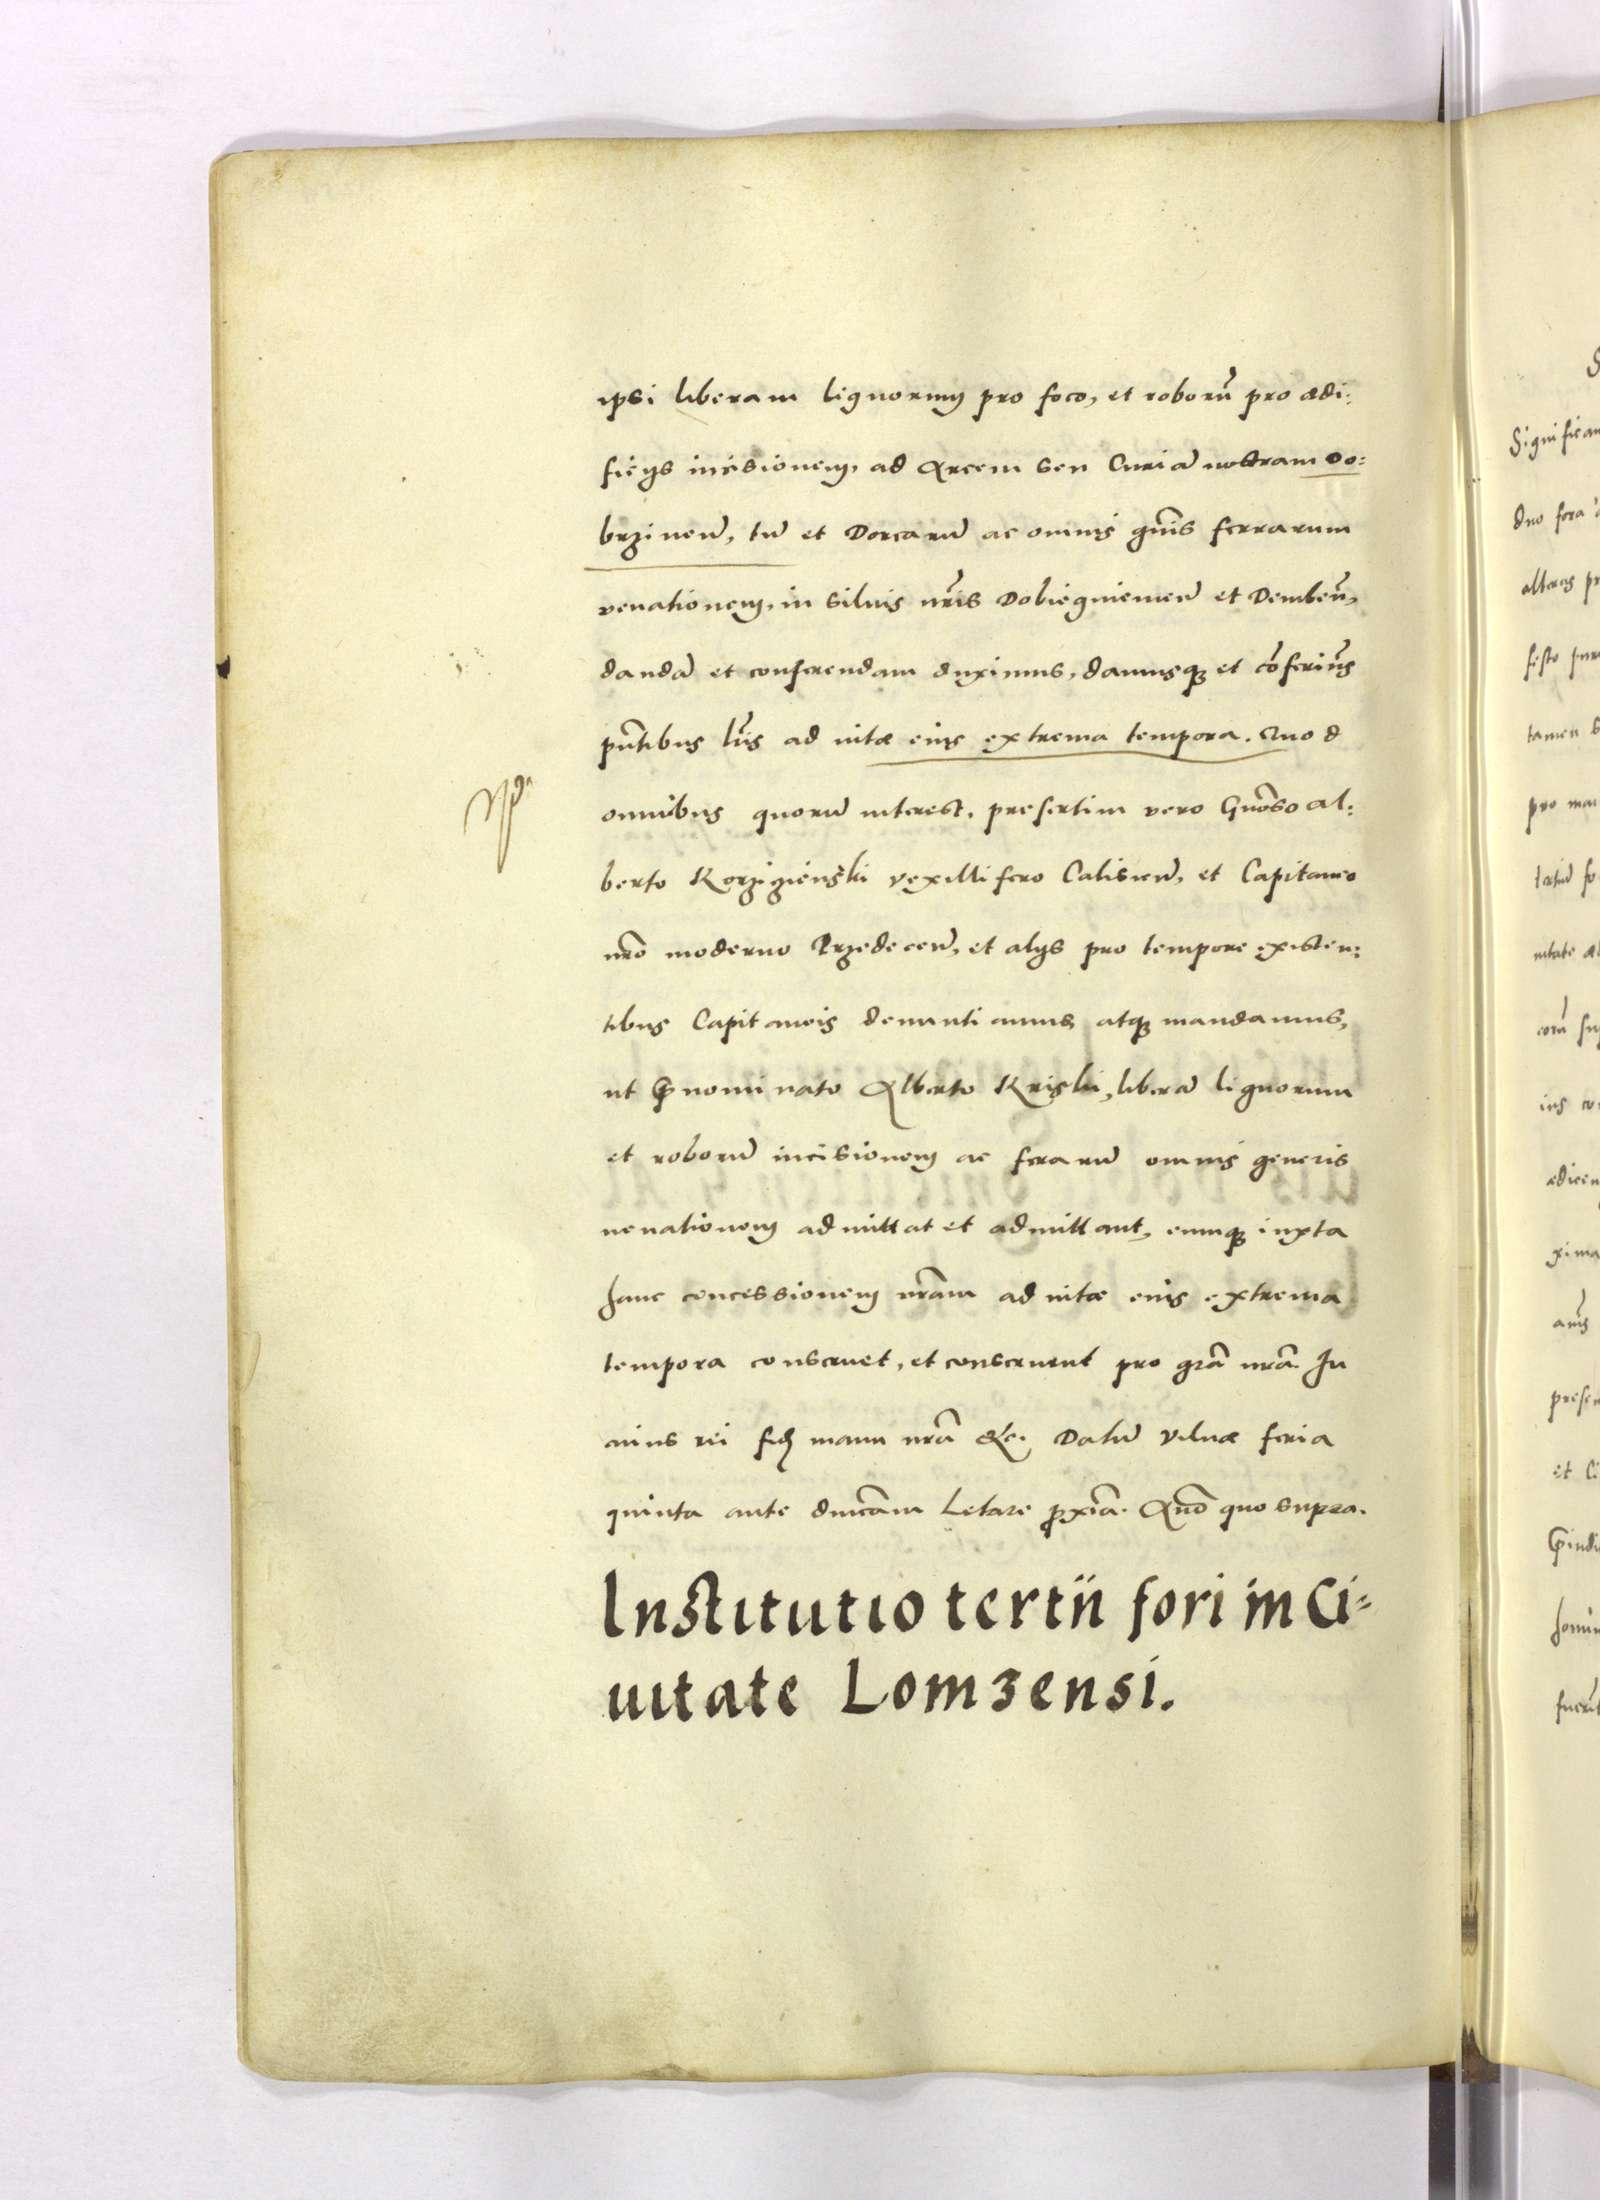 ipsi liberam lignorum pro foco, et roborũ pro ædi:
ficijs incisionem, ad Arcem seu Curiã nostram Do:
brzineñ, tũ et Dorcarũ ac omnis gñis ferrarum
venationem, in siluis nr̃is Dobiegniemeñ et Dembeñ,
dandã et conferendam duximus, damusq̃ et cõferimus
pñtibus lr̃is ad vitæ eius extrema tempora. Quod
omnibus quorũ interest, presertim vero Gnõso Al:
berto Korzizienski vexillifero Calisieñ, et Capitaneo
nrõ moderno Przedeceñ, et alijs pro tempore existen:
tibus Capitaneis denuntiamus atq̃ mandamus,
ut p̃nominato Alberto Kriski, liberã lignorum
et roborũ incisionem ac ferarũ omnis generis
venationem admittat et admittant, eumq̃ iuxta
hanc concessionem nrãm ad vitæ eius extrema
tempora conseruet, et conseruent pro grã nrã. In
cuius rei fid̃ manu nrã &c. Datũ Vilnæ feria
quinta ante dnicãm Letare p̃xiã. Añõ quo supra.
Institutio tertii fori in Ci-
uitate Lomzensi.